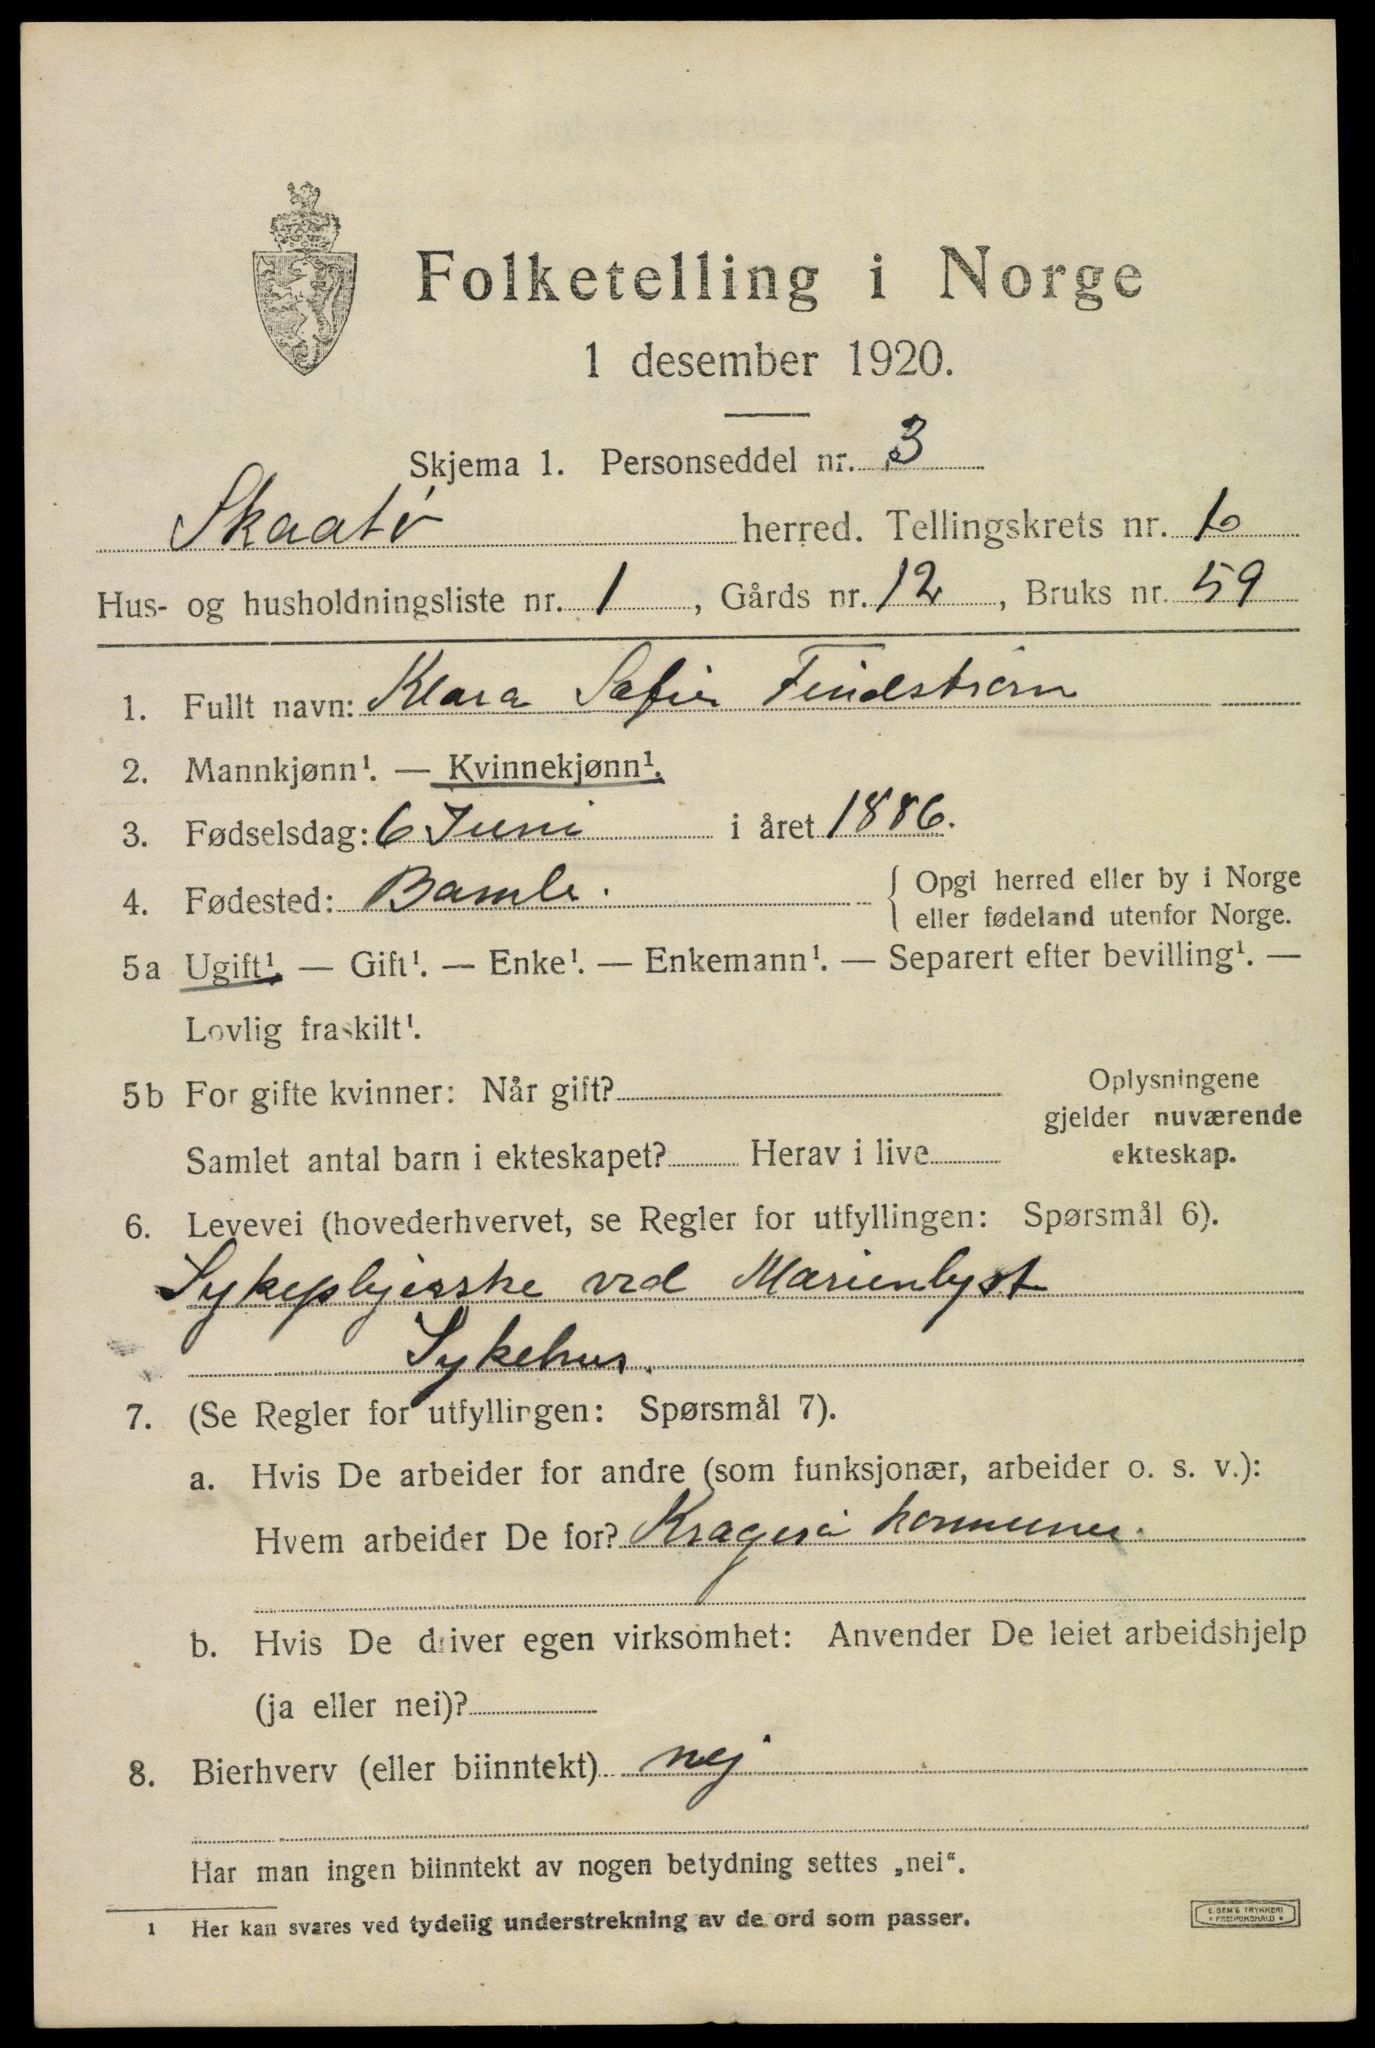 Folketelling i Norge
1 desember 1920.
Skjema 1. Personseddel nr. 3
Skaatø herred. Tellingskrets nr. 6
Hus- og husholdningsliste nr. 1, Gårds nr. 12, Bruks nr. 59
1. Fullt navn: Klara Sofie Findstrøm
2. Mannkjønn¹. — Kvinnekjønn¹.
3. Fødselsdag: 6 Juni i året 1886.
4. Fødested: Bamle. { Opgi herred eller by i Norge
eller fødeland utenfor Norge.
5a Ugift¹. — Gift¹. — Enke¹. — Enkemann¹. — Separert efter bevilling¹. —
Lovlig fraskilt¹.
5b For gifte kvinner: Når gift?
Samlet antal barn i ekteskapet? Herav i live
Oplysningene
gjelder nuværende
ekteskap.
6. Levevei (hovederhvervet, se Regler for utfyllingen: Spørsmål 6).
Sykeplejerske ved Marienlyst
Sykehus.
7. (Se Regler for utfyllingen: Spørsmål 7).
a. Hvis De arbeider for andre (som funksjonær, arbeider o. s. v.):
Hvem arbeider De for? Kragerø kommune.
b. Hvis De driver egen virksomhet: Anvender De leiet arbeidshjelp
(ja eller nei)?
8. Bierhverv (eller biinntekt) nej
Har man ingen biinntekt av nogen betydning settes „nei".
1 Her kan svares ved tydelig understrekning av de ord som passer.
E. SEM'S TRYKKERI
FREDRIKSHALD